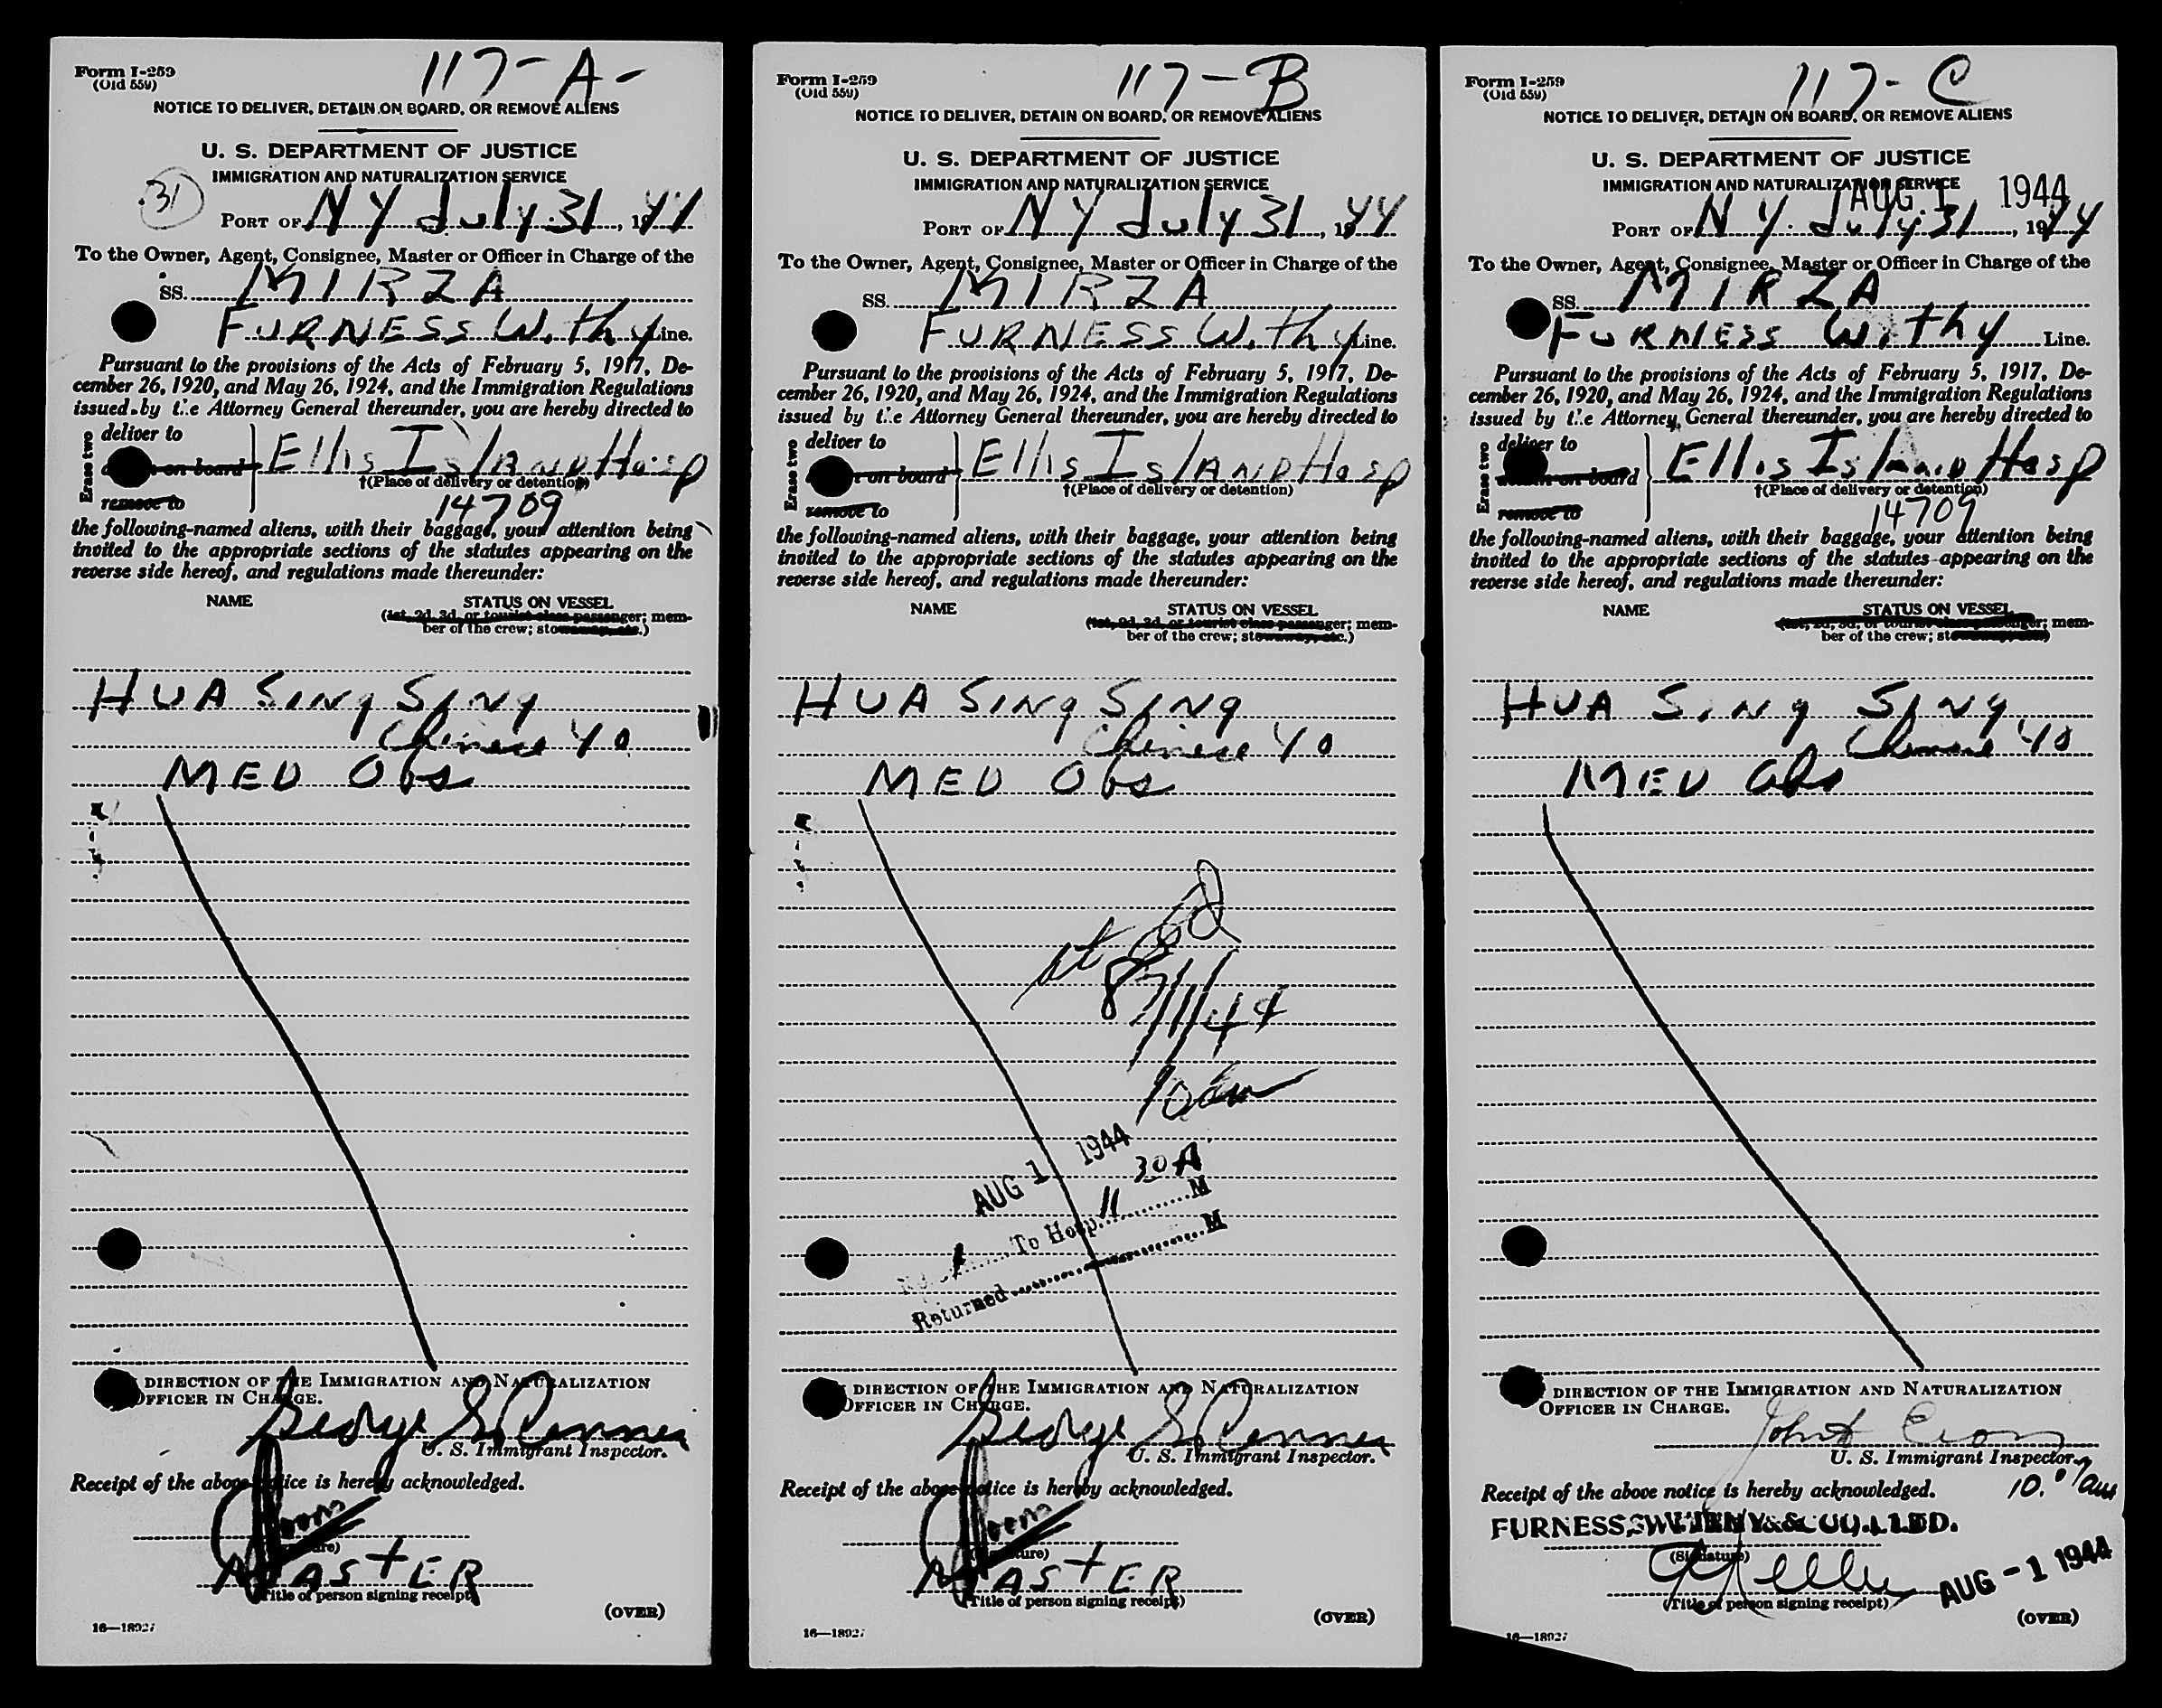 117-A-
Form I-259
(Old 559)
NOTICE TO DELIVER, DETAIN ON BOARD, OR REMOVE ALIENS
U. S. DEPARTMENT OF JUSTICE
IMMIGRATION AND NATURALIZATION SERVICE
31
PORT OF N Y July 31, 1944
To the Owner, Agent, Consignee, Master or Officer in Charge of the
SS. MIRZA
FURNESS Withy Line.
Pursuant to the provisions of the Acts of February 5, 1917, De-
cember 26, 1920, and May 26, 1924, and the Immigration Regulations
issued by the Attorney General thereunder, you are hereby directed to
Erase two
deliver to
on board
Ellis Island Hosp
†(Place of delivery or detention)
remove to
14709
the following-named aliens, with their baggage, your attention being
invited to the appropriate sections of the statutes appearing on the
reverse side hereof, and regulations made thereunder:
NAME STATUS ON VESSEL
(1st, 2d, 3d, or tourist class passenger; mem-
ber of the crew; stowaway, etc.)
HUA SING SING
Chinese 40
MED Obs
DIRECTION OF THE IMMIGRATION AND NATURALIZATION
OFFICER IN CHARGE.
George S
U. S. Immigrant Inspector.
Receipt of the above notice is hereby acknowledged.
MASTER
(Title of person signing receipt)
(OVER)
16—18927
117-B
Form I-259
(Old 559)
NOTICE TO DELIVER, DETAIN ON BOARD, OR REMOVE ALIENS
U. S. DEPARTMENT OF JUSTICE
IMMIGRATION AND NATURALIZATION SERVICE
PORT OF N Y July 31, 1944
To the Owner, Agent, Consignee, Master or Officer in Charge of the
SS. MIRZA
FURNESS Withy Line.
Pursuant to the provisions of the Acts of February 5, 1917, De-
cember 26, 1920, and May 26, 1924, and the Immigration Regulations
issued by the Attorney General thereunder, you are hereby directed to
Erase two
deliver to
on board
Ellis Island Hosp
†(Place of delivery or detention)
remove to
the following-named aliens, with their baggage, your attention being
invited to the appropriate sections of the statutes appearing on the
reverse side hereof, and regulations made thereunder:
NAME STATUS ON VESSEL
(1st, 2d, 3d, or tourist class passenger; mem-
ber of the crew; stowaway, etc.)
HUA SING SING
Chinese 40
MED Obs
8/1/44
10am
AUG 1 1944
To Hosp. 11 30 A M
Returned M
DIRECTION OF THE IMMIGRATION AND NATURALIZATION
OFFICER IN CHARGE.
George S
U. S. Immigrant Inspector.
Receipt of the above notice is hereby acknowledged.
MASTER
(Title of person signing receipt)
(OVER)
16—18927
117-C
Form I-259
(Old 559)
NOTICE TO DELIVER, DETAIN ON BOARD, OR REMOVE ALIENS
U. S. DEPARTMENT OF JUSTICE
IMMIGRATION AND NATURALIZATION SERVICE
AUG 1 1944
PORT OF N Y. July 31, 1944
To the Owner, Agent, Consignee, Master or Officer in Charge of the
SS. MIRZA
FURNESS Withy Line.
Pursuant to the provisions of the Acts of February 5, 1917, De-
cember 26, 1920, and May 26, 1924, and the Immigration Regulations
issued by the Attorney General thereunder, you are hereby directed to
Erase two
deliver to
on board
Ellis Island Hosp
†(Place of delivery or detention)
remove to
14709
the following-named aliens, with their baggage, your attention being
invited to the appropriate sections of the statutes appearing on the
reverse side hereof, and regulations made thereunder:
NAME STATUS ON VESSEL
(1st, 2d, 3d, or tourist class passenger; mem-
ber of the crew; stowaway, etc.)
HUA SING SING
Chinese 40
MED Obs
DIRECTION OF THE IMMIGRATION AND NATURALIZATION
OFFICER IN CHARGE.
John
U. S. Immigrant Inspector.
Receipt of the above notice is hereby acknowledged.
FURNESS, WITHY & CO. LTD.
(Signature)
AUG -1 1944
(Title of person signing receipt)
(OVER)
16—18927